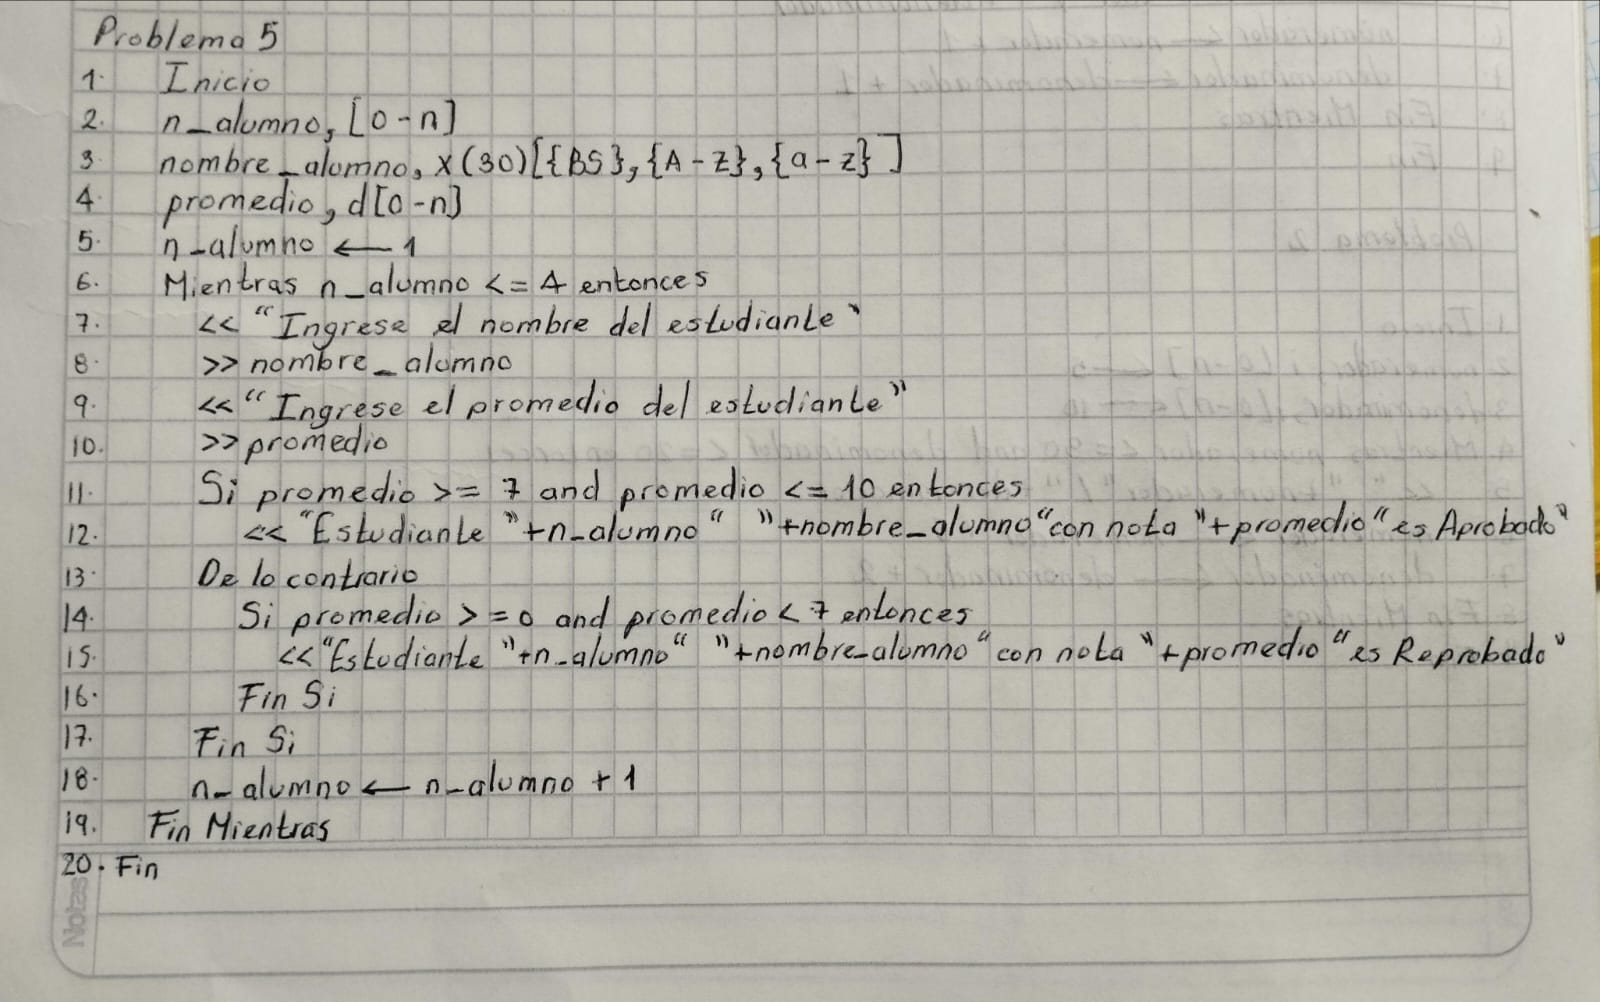 Problema 5
1. Inicio
2. n_alumno, [0-n]
3 nombre_alumno, x(30)[{BS},{A-Z},{a-z}]
4. promedio, d[0-n]
5. n_alumno ← 1
6. Mientras n_alumno <= 4 entonces
7. << "Ingrese el nombre del estudiante"
8. >> nombre_alumno
9. << "Ingrese el promedio del estudiante"
10. >> promedio
11. Si promedio >= 7 and promedio <= 10 entonces
12. << "Estudiante "+n_alumno" "+nombre_alumno"con nota "+promedio"es Aprobado"
13. De lo contrario
14. Si promedio >=0 and promedio < 7 entonces
15. << "Estudiante "+n_alumno" "+nombre_alumno"con nota "+promedio"es Reprobado"
16. Fin Si
17. Fin Si
18. n_alumno ← n_alumno + 1
19. Fin Mientras
20. Fin
Notas